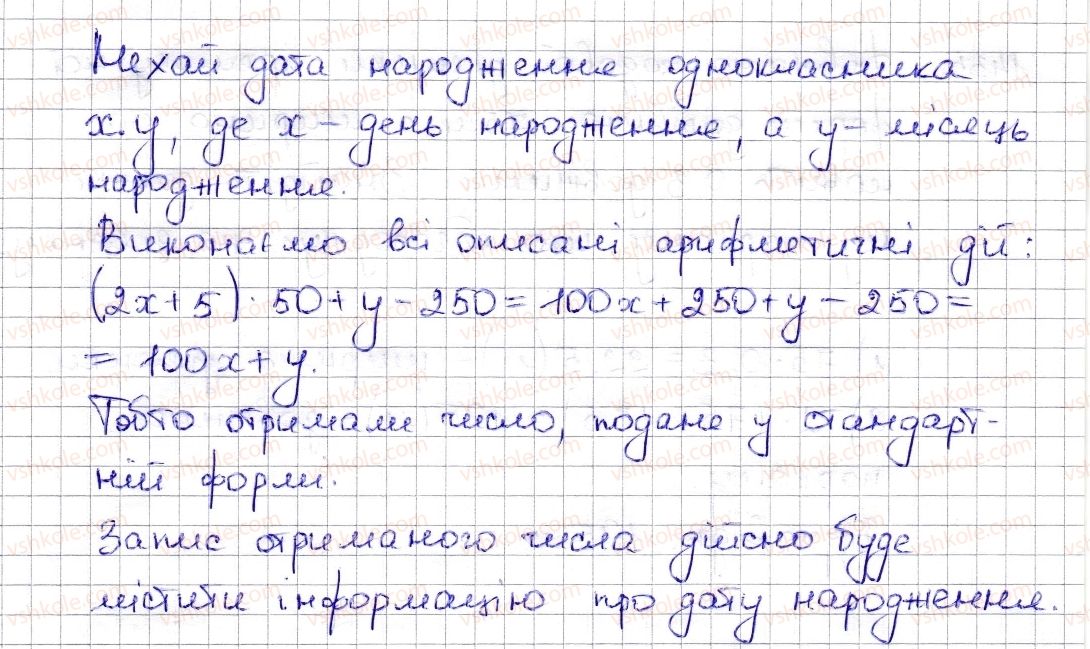 Нехай дата народження однокласника
x.y, де x – день народження, а y – місяць
народження.
Виконаємо всі описані арифметичні дії:
(2x + 5) · 50 + y – 250 = 100x + 250 + y – 250 =
= 100x + y.
Тобто отримали число, подане у стандарт-
ній формі.
Запис отриманого числа дійсно буде
містити інформацію про дату народження.